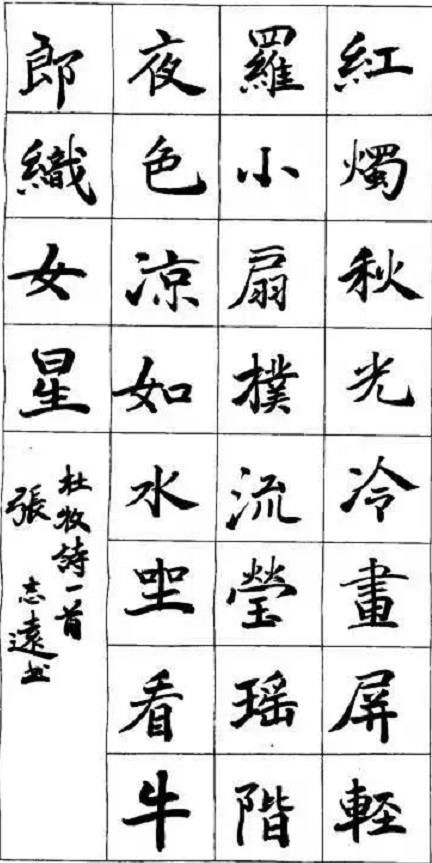 紅燭秋光冷畫屏軽
羅小扇撲流瑩瑶階
夜色涼如水坐看牛
郎織女星
杜牧詩一首
張志遠书